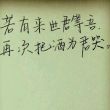 若有来世君等吾
再次把酒为君哭。